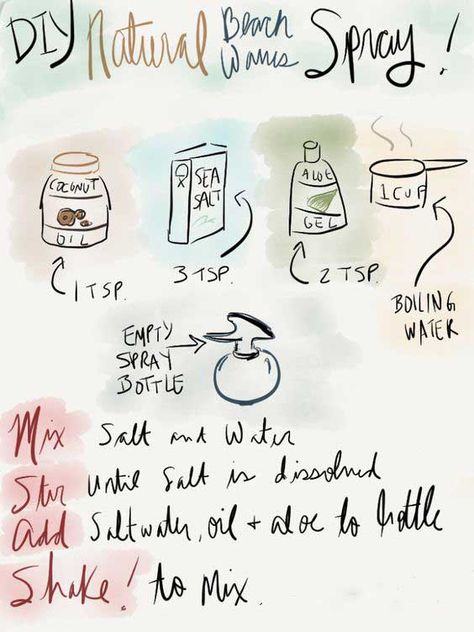 DIY Natural Beach Waves Spray!
COCONUT OIL
SEA SALT
ALOE GEL
1 CUP
1 TSP.
3 TSP.
2 TSP.
BOILING WATER
EMPTY
SPRAY
BOTTLE
Mix Salt and Water
Stir until Salt is dissolved
Add Saltwater, oil + aloe to bottle
Shake! to Mix.